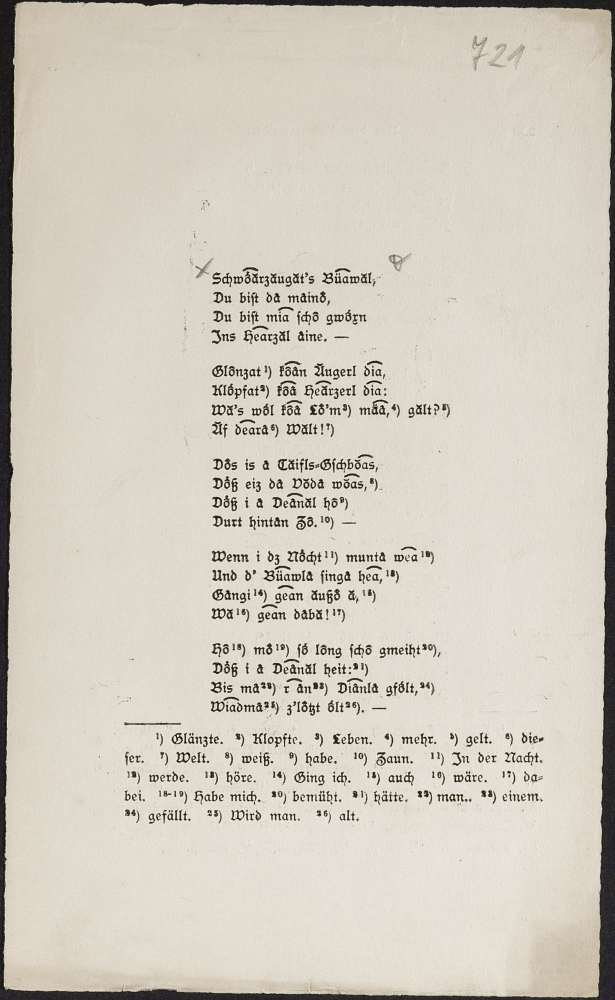 721
Schwo͡ärzäugät's Bü͡awäl,
Du bist da mainö,
Du bist mi͡a schö gwöxn
Ins He͡arzäl aine. —
Glönzat ¹) ko͡ân Äugerl di͡a,
Klöpfat²) ko͡â He͡ârzerl di͡a:
Wä's wöl ko͡â Lö'm³) mä͡â,⁴) gält?⁵)
Äf de͡arâ⁶) Wält!⁷)
Dös is â Täifls=Gschbö͡as,
Döß eiz dâ Vödâ wö͡as,⁸)
Döß i â De͡ânäl hö⁹)
Durt hintân Zö.¹⁰) —
Wenn i dz Nöcht¹¹) muntâ we͡a¹²)
Und d' Bü͡awlâ singâ he͡a,¹³)
Gângi¹⁴) ge͡an äußö ä,¹⁵)
Wä¹⁶) ge͡an dâbä!¹⁷)
Hö¹⁸) mö¹⁹) sö löng schö gmeiht²⁰),
Döß i â De͡ânäl heit:²¹)
Bis mâ²²) r ân²³) Di͡ânlâ gfölt,²⁴)
Wi͡admâ²⁵) z'lötzt ölt²⁶). —
¹) Glänzte. ²) Klopfte. ³) Leben. ⁴) mehr. ⁵) gelt. ⁶) die=
ser. ⁷) Welt. ⁸) weiß. ⁹) habe. ¹⁰) Zaun. ¹¹) In der Nacht.
¹²) werde. ¹³) höre. ¹⁴) Ging ich. ¹⁵) auch ¹⁶) wäre. ¹⁷) da=
bei. ¹⁸⁻¹⁹) Habe mich. ²⁰) bemüht. ²¹) hätte. ²²) man.. ²³) einem.
²⁴) gefällt. ²⁵) Wird man. ²⁶) alt.